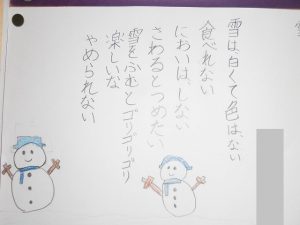 雪は白くて色は、ない
食べれない
においは、しない
さわるとつめたい
雪をふむとゴリゴリゴリ
楽しいな
やめられない